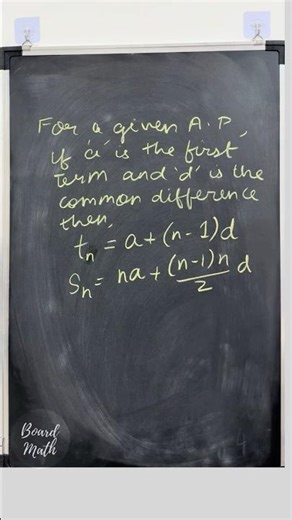 For a given A.P,
if 'a' is the first
term and 'd' is the
common difference
then,
tₙ = a + (n-1)d
Sₙ = na + (n-1)n/2 d
Board
Math